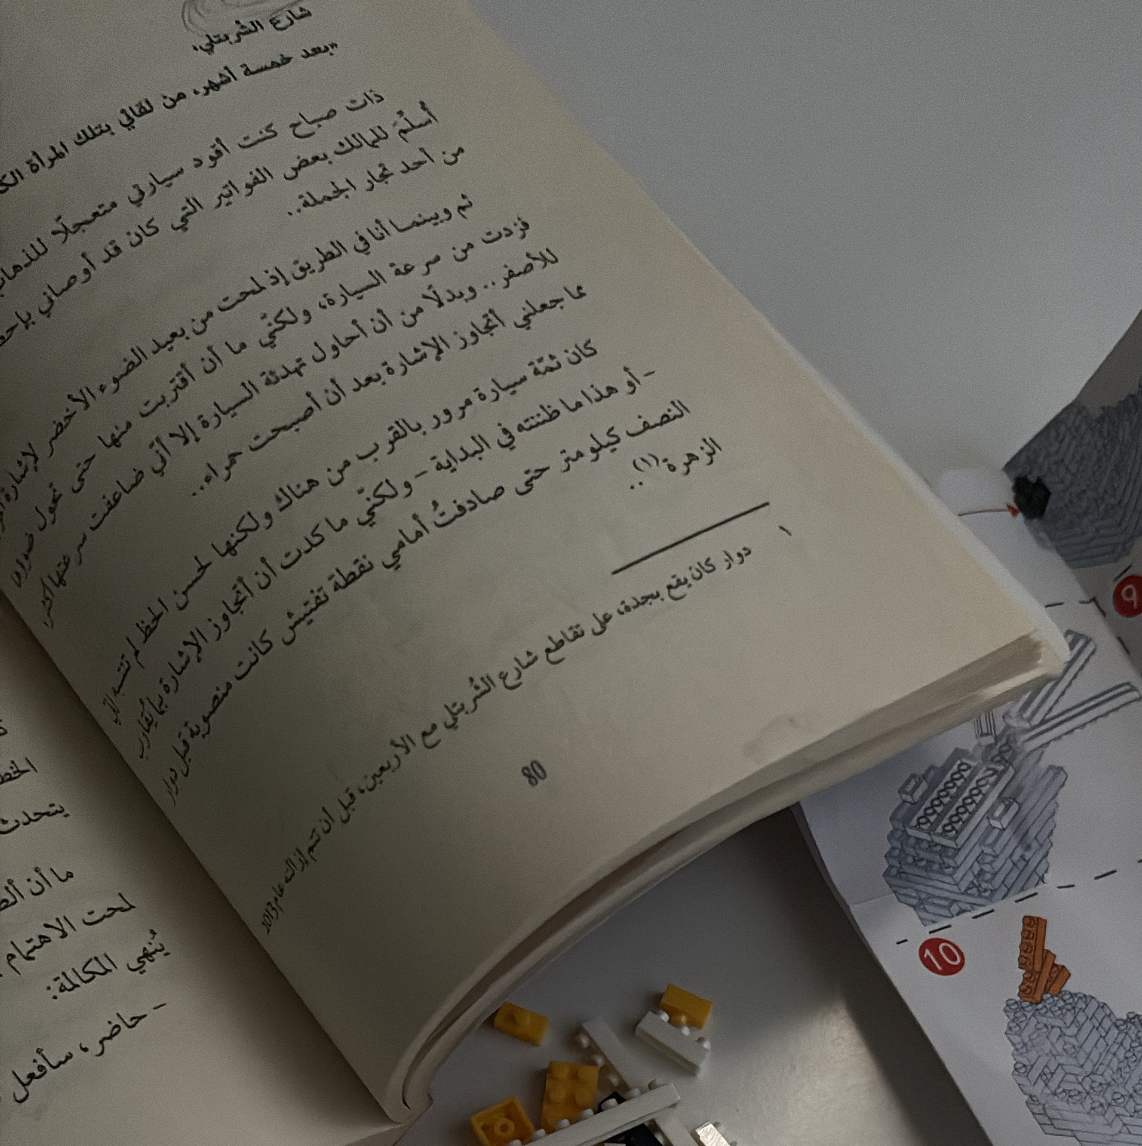 شارع الشربتلي،
"بعد خمسة أشهر، من لقائي بتلك المرأة
ذات صباح كنت أقود سيارتي متعجلًا للذهاب
أسلّم للمالك بعض الفواتير التي كان قد أوصاني
من أحد تجار الجملة..
ثم وبينما أنا في الطريق إذ لمحت من بعيد الضوء الأخضر لإشارة
فزدت من سرعة السيارة، ولكنّي ما أن أقتربت منها حتى تحول ضوءها
للأصفر.. وبدلًا من أن أحاول تهدئة السيارة إلا أنّي ضاعفت سرعتها أكثر،
مما جعلني أتجاوز الإشارة بعد أن أصبحت حمراء..
كان ثمّة سيارة مرور بالقرب من هناك ولكنها لحسن الحظ لم تنتبه إليّ
- أو هذا ما ظننته في البداية - ولكنّي ما كدت أن أتجاوز الإشارة بما يُقارب
النصف كيلو متر حتى صادفتُ أمامي نقطة تفتيش كانت منصوبة قبل دوار
الزهرة(١)..
١ دوار كان يقع بجدة، على تقاطع شارع الشّربتلي مع الأربعين، قبل أن تتم إزالته عام 2013
80
يتحدث
ما أن
لمحت الاهتمام
يُنهي المكالمة:
- حاضر، سأفعل
9
10